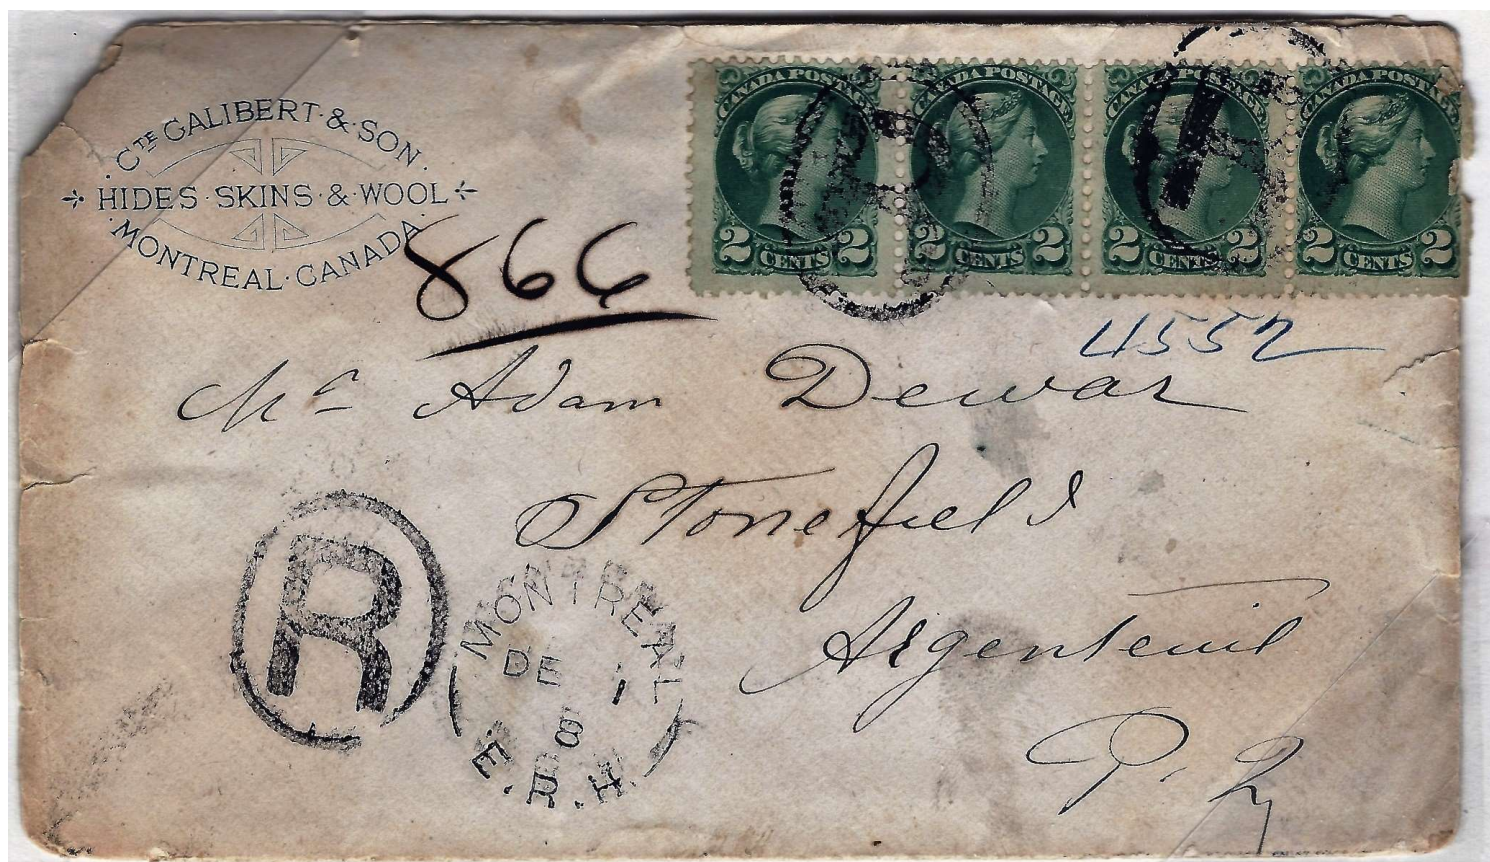 Cte GALIBERT & SON.
HIDES · SKINS · & · WOOL
· MONTREAL · CANADA ·
CANADA POSTAGE
2 CENTS 2
CANADA POSTAGE
2 CENTS 2
CANADA POSTAGE
2 CENTS 2
CANADA POSTAGE
2 CENTS 2
R
866
4552
Mr Adam Dewar
Stonefield
Argenteuil
P. Q
R
MONTREAL
DE 1
8
E.R.H.